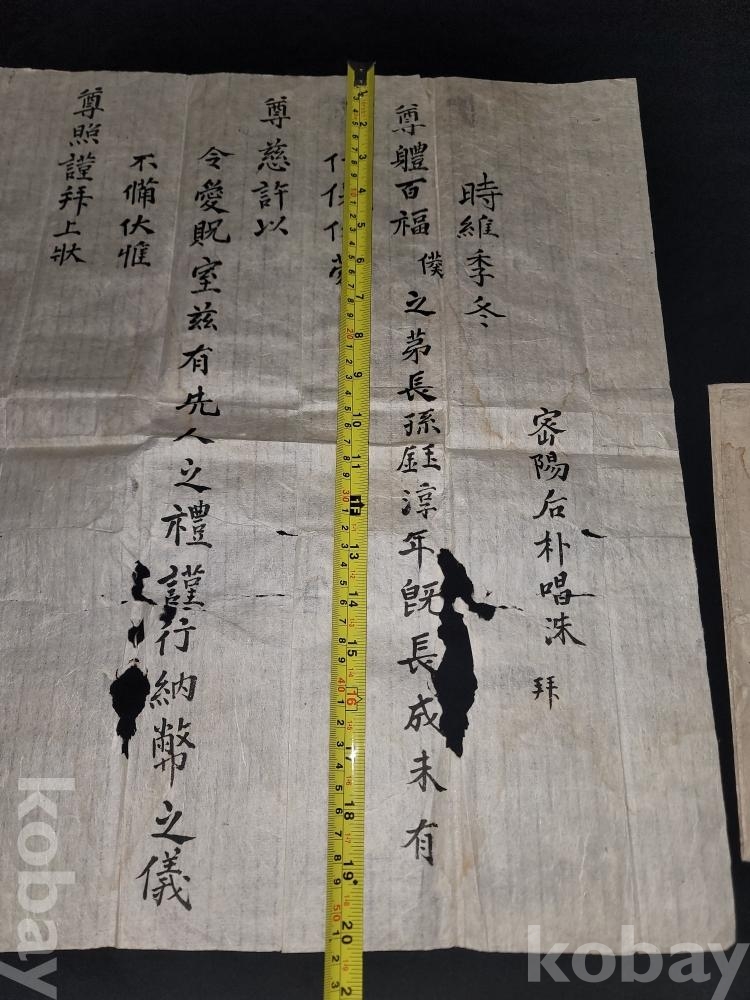 密陽后朴唱洙 拜
時維季冬
尊軆百福 僕之苐長孫鈺淳年旣長成未有
尊慈許以
令愛貺室玆有先人之禮謹行納幣之儀
不備伏惟
尊照謹拜上狀
kobay
kobay